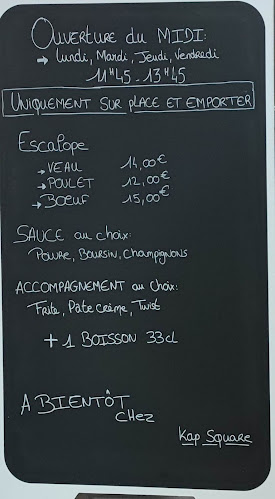 OUVERTURE DU MIDI:
→ Lundi, Mardi, Jeudi, Vendredi
11H45 - 13H45
UNIQUEMENT SUR PLACE ET EMPORTER
Escalope
→ VEAU 14,00€
→ POULET 12,00€
→ BOEUF 15,00€
SAUCE au choix:
Poivre, Boursin, Champignons
ACCOMPAGNEMENT au choix:
Frite, Pâte crème, Twist
+ 1 BOISSON 33cl
A BIENTÔT
CHEZ
Kap Square